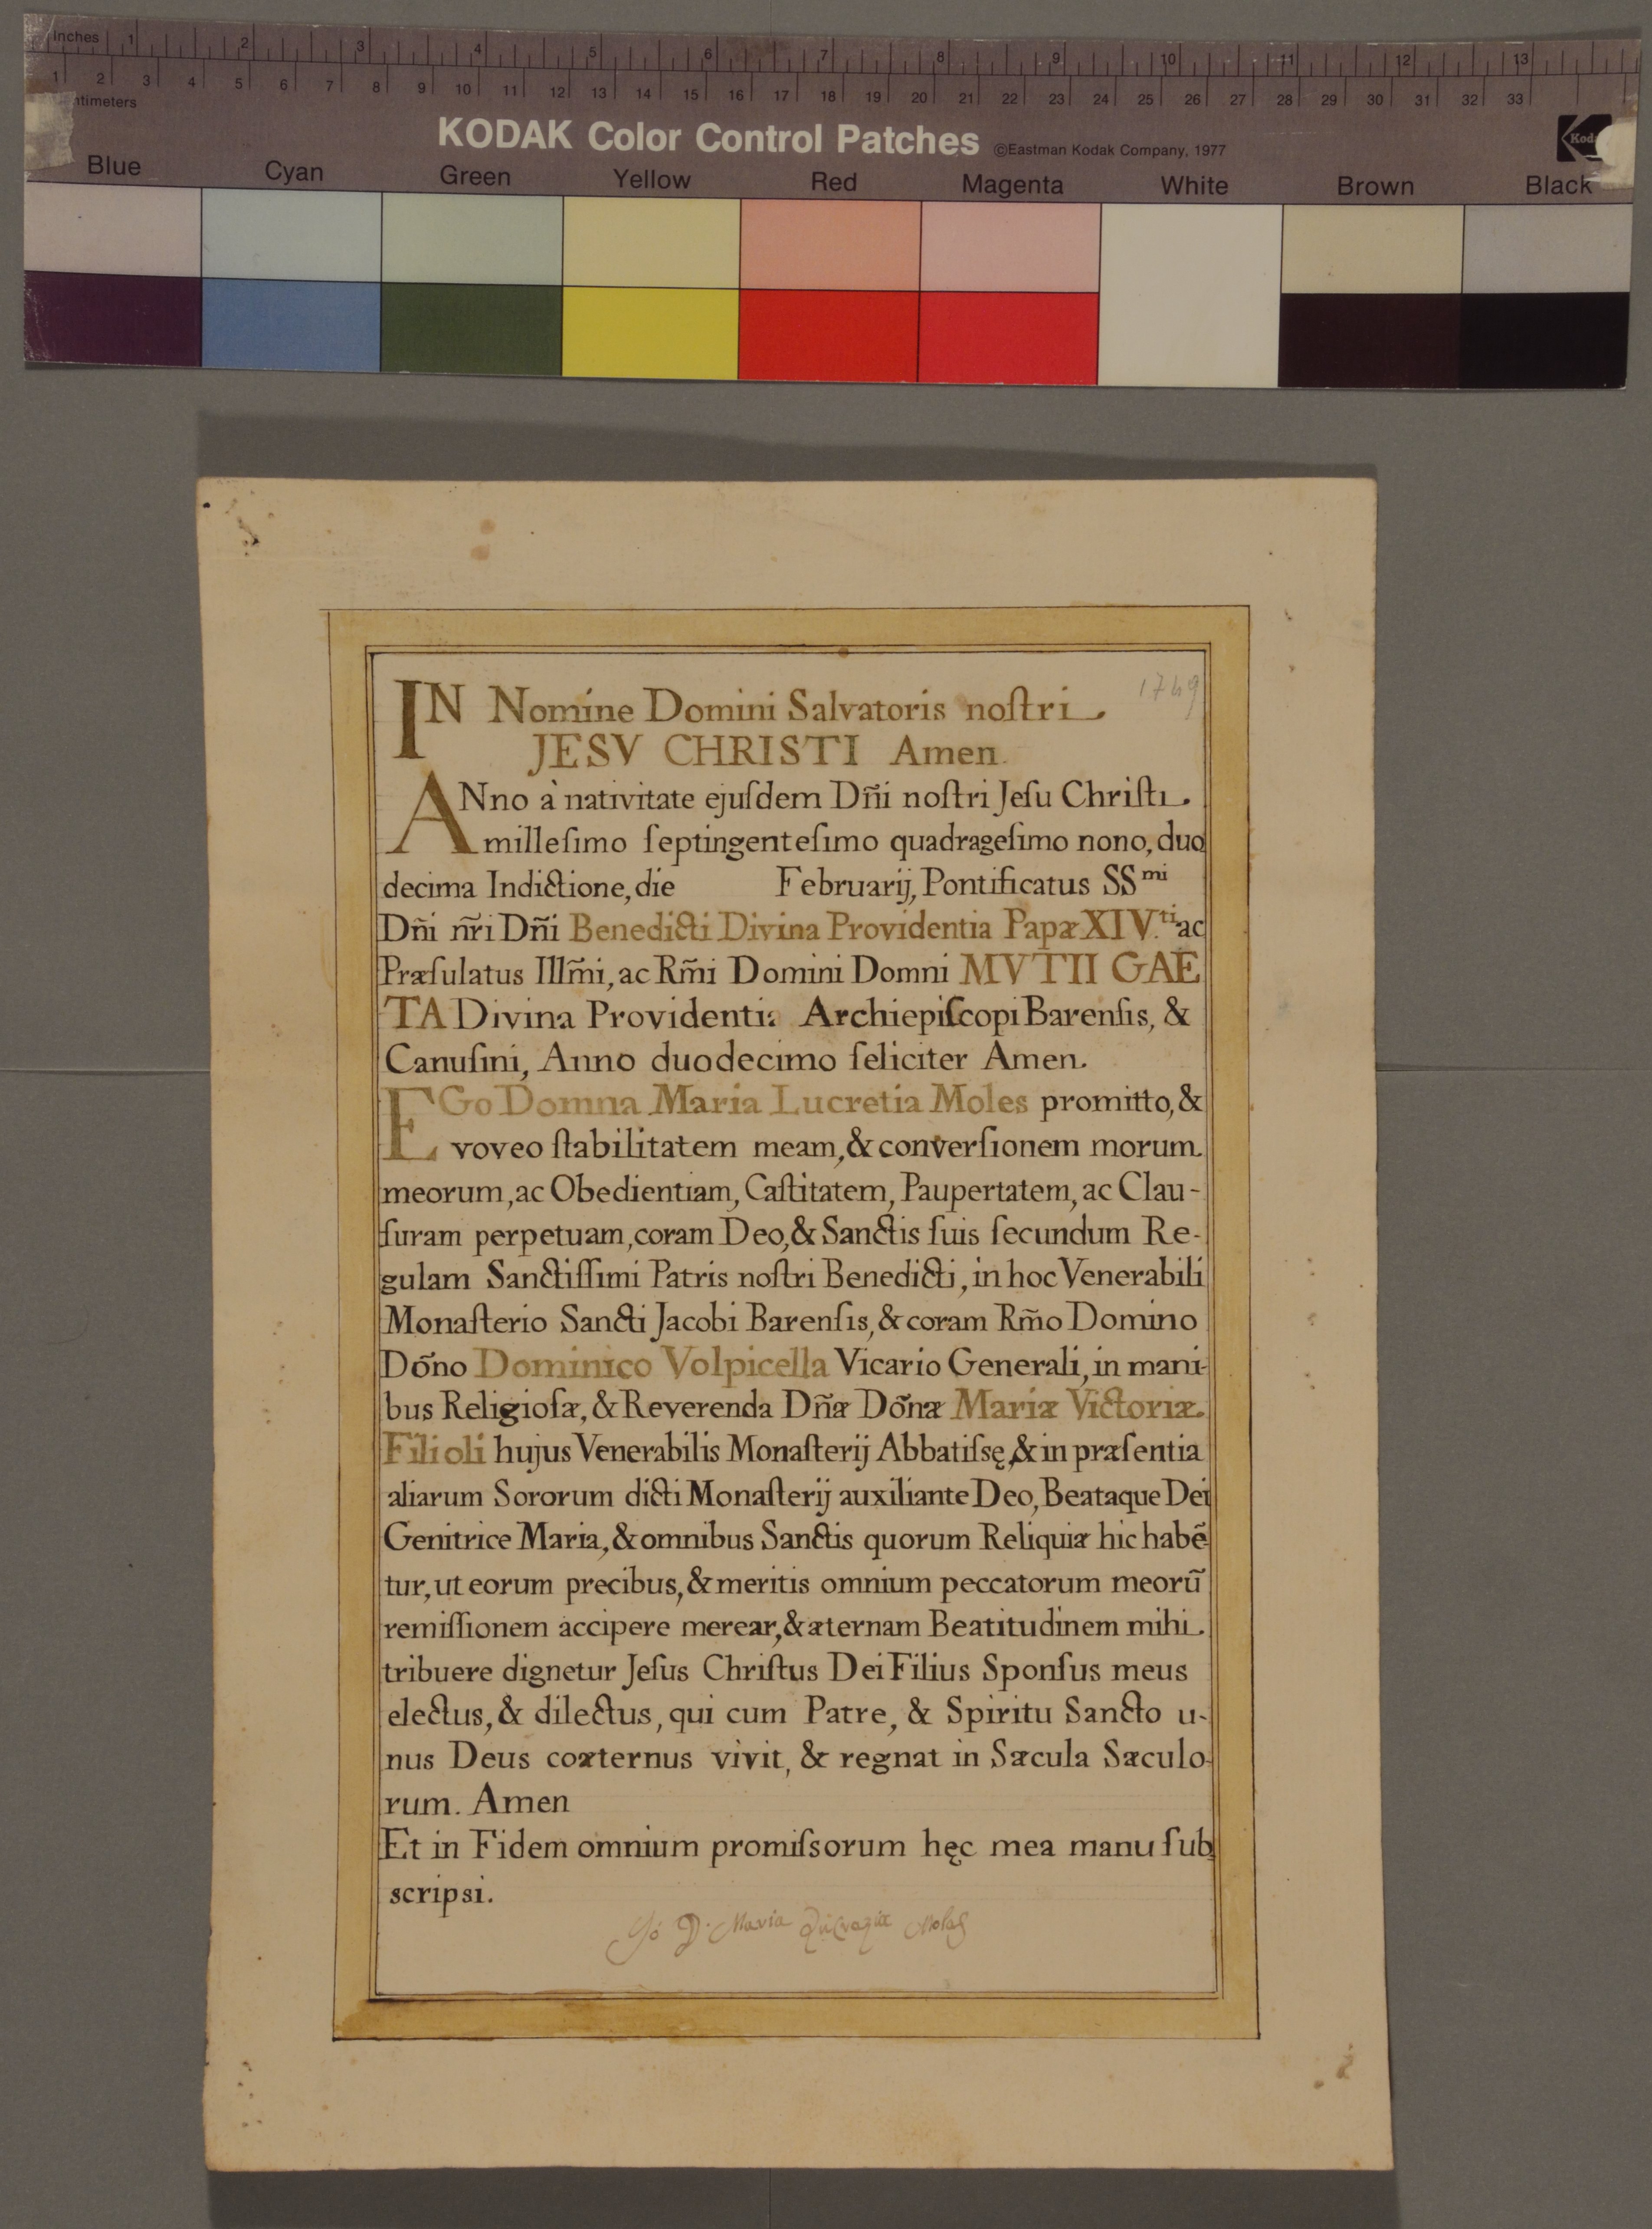 Inches 1 2 3 4 5 6 7 8 9 10 11 12 13
1 2 3 4 5 6 7 8 9 10 11 12 13 14 15 16 17 18 19 20 21 22 23 24 25 26 27 28 29 30 31 32 33
ntimeters
KODAK Color Control Patches ©Eastman Kodak Company, 1977
Kod
Blue Cyan Green Yellow Red Magenta White Brown Black
1749
IN Nomine Domini Salvatoris noſtri
JESV CHRISTI Amen.
ANno à nativitate ejuſdem Dñi noſtri Jeſu Chriſti.
milleſimo ſeptingenteſimo quadrageſimo nono, duo
decima Indictione, die Februarij, Pontificatus SSmi
Dñi nr̃i Dñi Benedicti Divina Providentia Papæ XIV.ti ac
Præſulatus Illm̃i, ac Rm̃i Domini Domni MVTII GAE
TA Divina Providentia Archiepiſcopi Barenſis, &
Canuſini, Anno duodecimo feliciter Amen.
EGo Domna Maria Lucretia Moles promitto, &
voveo ſtabilitatem meam, & converſionem morum
meorum, ac Obedientiam, Caſtitatem, Paupertatem, ac Clau-
ſuram perpetuam, coram Deo, & Sanctis ſuis ſecundum Re-
gulam Sanctiſſimi Patris noſtri Benedicti, in hoc Venerabili
Monaſterio Sancti Jacobi Barenſis, & coram Rm̃o Domino
Dõno Dominico Volpicella Vicario Generali, in mani-
bus Religioſæ, & Reverenda Dñæ Dõnæ Mariæ Victoriæ
Filioli hujus Venerabilis Monaſterij Abbatiſsę, & in præſentia
aliarum Sororum dicti Monaſterij auxiliante Deo, Beataque Dei
Genitrice Maria, & omnibus Sanctis quorum Reliquiæ hic habẽ
tur, ut eorum precibus, & meritis omnium peccatorum meorũ
remiſſionem accipere merear, & æternam Beatitudinem mihi
tribuere dignetur Jeſus Chriſtus Dei Filius Sponſus meus
electus, & dilectus, qui cum Patre, & Spiritu Sancto u-
nus Deus coæternus vivit, & regnat in Sæcula Sæculo-
rum. Amen
Et in Fidem omnium promiſsorum hęc mea manu ſub
scripsi.
Io D. Maria Moles